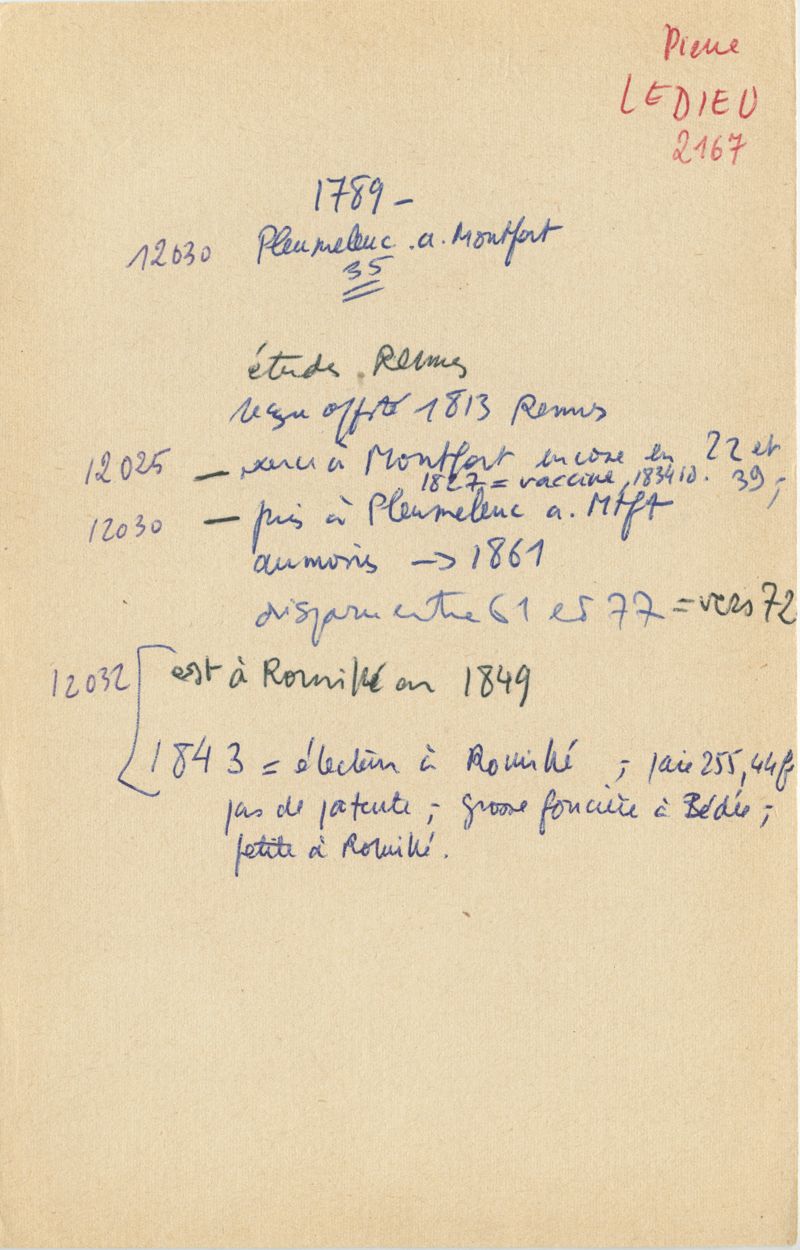 Pierre
LEDIEU
2167
1789 –
12030 Pleumeleuc . a . Montfort
35
études . Rennes
reçu off té 1813 Rennes
12025 – exerce à Montfort encore en 22 et
1827 = vaccine, 1834 id. 39 ;
12030 – puis à Pleumeleuc a. Mtft
au moins -> 1861
disparu entre 61 et 77 = vers 72
12032 est à Romillé en 1849
1843 = électeur à Romillé ; paie 255,44f
pas de patente ; grosse foncière à Bédée ;
petite à Romillé .